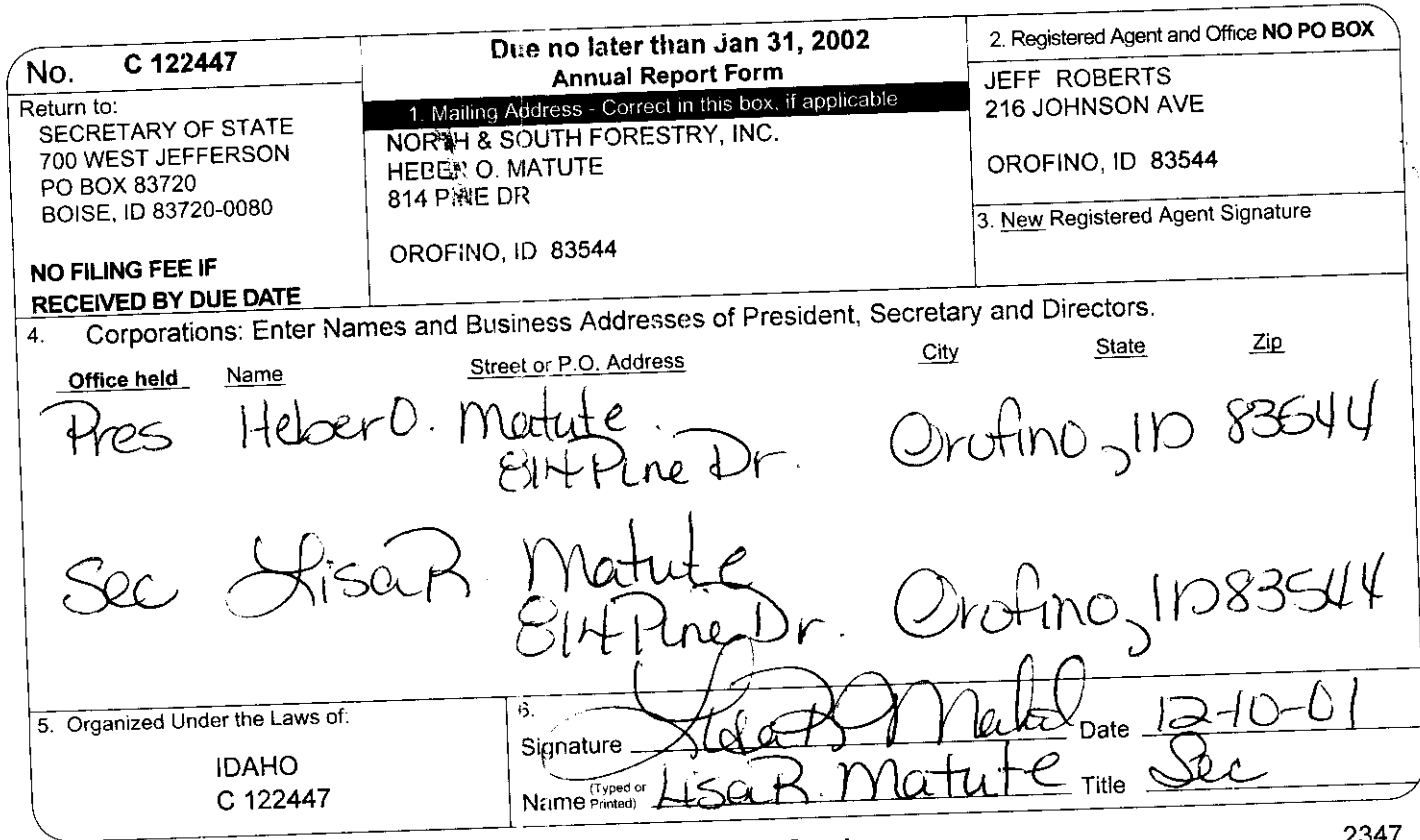 No. C 122447
Return to:
SECRETARY OF STATE
700 WEST JEFFERSON
PO BOX 83720
BOISE, ID 83720-0080
NO FILING FEE IF
RECEIVED BY DUE DATE
Due no later than Jan 31, 2002
Annual Report Form
1. Mailing Address - Correct in this box, if applicable
NORTH & SOUTH FORESTRY, INC.
HEBER O. MATUTE
814 PINE DR
OROFINO, ID 83544
2. Registered Agent and Office NO PO BOX
JEFF ROBERTS
216 JOHNSON AVE
OROFINO, ID 83544
3. New Registered Agent Signature
4. Corporations: Enter Names and Business Addresses of President, Secretary and Directors.
Office held Name Street or P.O. Address City State Zip
Pres Heber O. Matute
814 Pine Dr. Orofino, ID 83544
Sec Lisa R Matute
814 Pine Dr. Orofino, ID 83544
5. Organized Under the Laws of:
IDAHO
C 122447
6.
Signature Lisa R Matute Date 12-10-01
Name (Typed or Printed) Lisa R. Matute Title Sec
2347